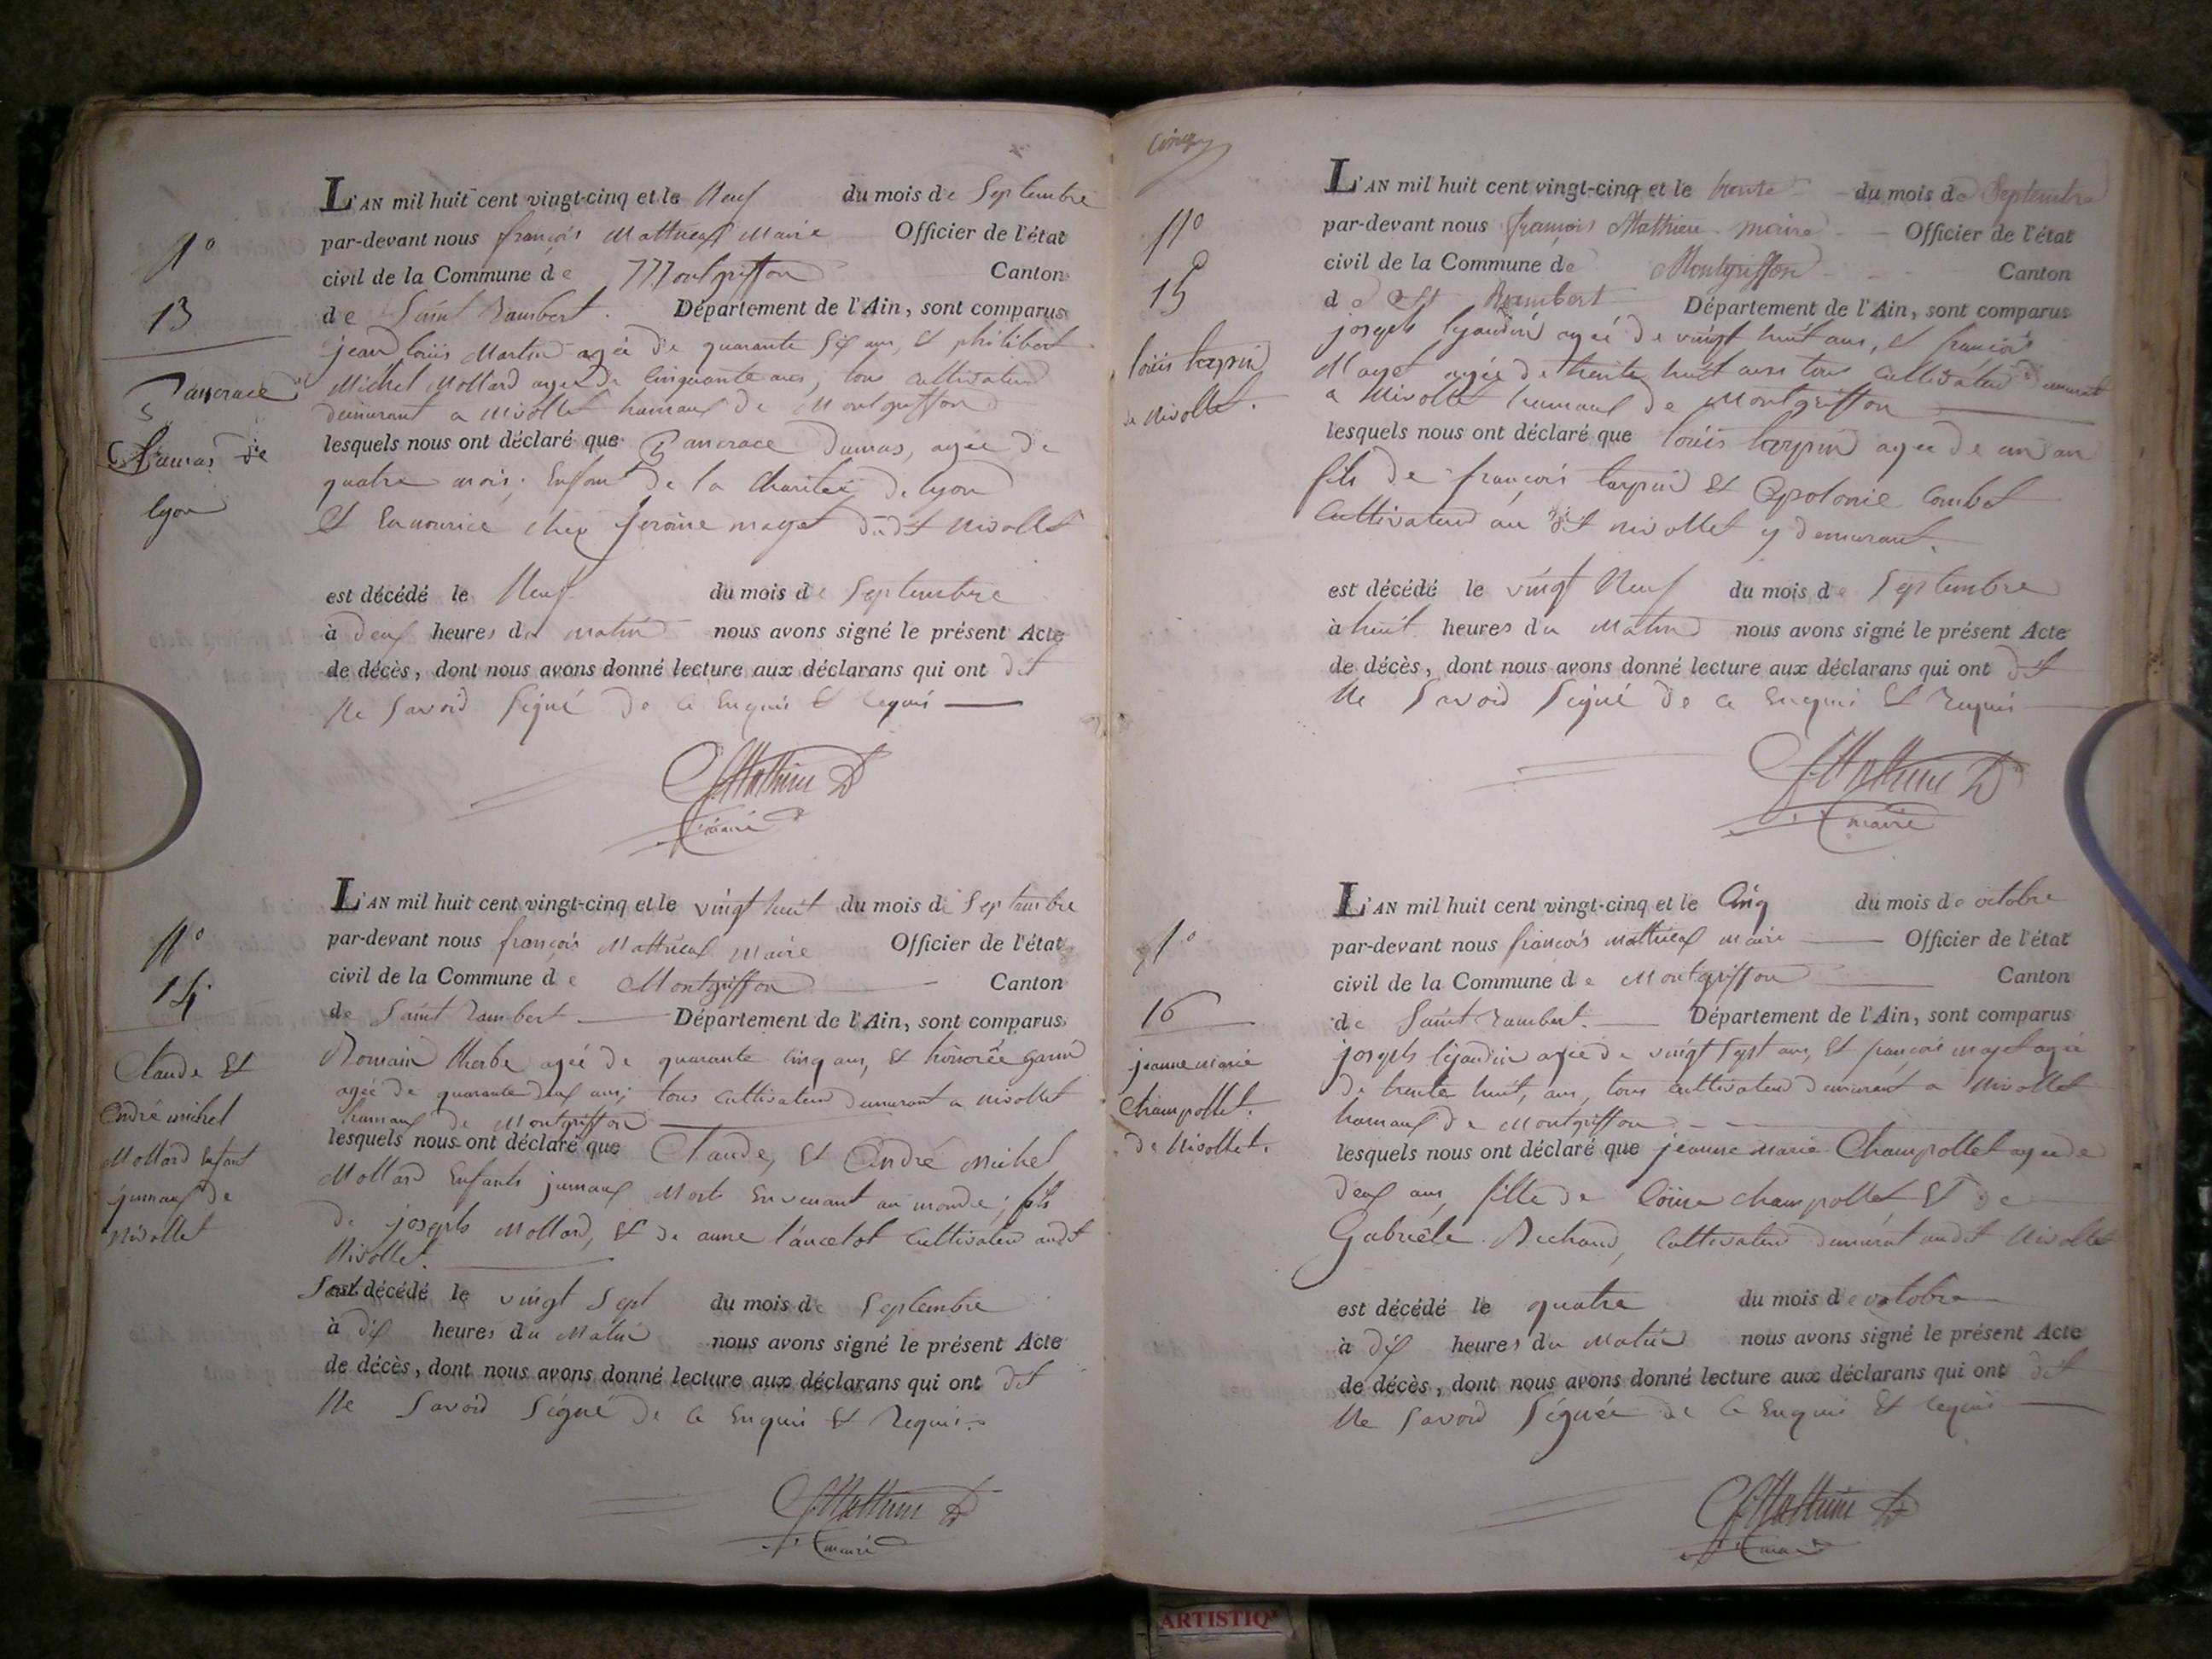 L'AN mil huit cent vingt-cinq et le Neuf du mois de Septembre
par-devant nous françois Mathieux Maire Officier de l'état
civil de la Commune de Montgriffon Canton
de Saint Rambert. Département de l'Ain, sont comparus
jean louis Martin agée de quarante six ans, et philibert
Michel Mollard agée de Cinquante ans, tous cultivateurs
demeurant a nivollet hamaux de Montgriffon
lesquels nous ont déclaré que Pancrace Dumas, agée de
quatre mois, Enfant de la Charitée de lyon
et En nourice chez mayet dudit nivollet
est décédé le Neuf du mois de Septembre
à deux heures du matin nous avons signé le présent Acte
de décès, dont nous avons donné lecture aux déclarans qui ont dit
Ne Savoir Signé de ce Enquis et requis
fMathieux
maire
N°
13
Pancrace
Dumas de
lyon
L'AN mil huit cent vingt-cinq et le vingt huit du mois de Septembre
par-devant nous françois Mathieux Maire Officier de l'état
civil de la Commune de Montgriffon Canton
de Saint Rambert Département de l'Ain, sont comparus
Romain agée de quarante Cinq ans, et honorée
agée de quarante deux ans, tous cultivateurs demeurant a nivollet
hamaux de Montgriffon
lesquels nous ont déclaré que Claude, et André Michel
Mollard Enfants jumaux Morts En venant au monde, fils
de joseph Mollard, et de anne lancelot Cultivateur audit
Nivollet.
Sont décédé le vingt Sept du mois de Septembre
à dix heures du Matin nous avons signé le présent Acte
de décès, dont nous avons donné lecture aux déclarans qui ont dit
Ne Savoir Signé de ce Enquis et Requis
fMathieux
maire
N°
14
Claude et
André michel
Mollard Enfant
jumaux de
Nivollet
Cinq
L'AN mil huit cent vingt-cinq et le trente du mois de Septembre
par-devant nous françois Mathieu maire Officier de l'état
civil de la Commune de Montgriffon Canton
de St Rambert Département de l'Ain, sont comparus
joseph agée de vingt huit ans, et françois
Mayet agée de trente huit ans tous Cultivateur demeurant
a Nivollet hamaux de Montgriffon
lesquels nous ont déclaré que louis tarpin agée de un an
fils de françois tarpin et Apolonie Combet
Cultivateur au dit nivollet y demeurant.
est décédé le vingt Neuf du mois de Septembre
à huit heures du Matin nous avons signé le présent Acte
de décès, dont nous avons donné lecture aux déclarans qui ont dit
Ne Savoir Signé de ce Enquis et Requis
fMathieux
maire
N°
15
louis tarpin
de Nivollet.
L'AN mil huit cent vingt-cinq et le Cinq du mois de octobre
par-devant nous françois Mathieux maire Officier de l'état
civil de la Commune de Montgriffon Canton
de Saint Rambert. Département de l'Ain, sont comparus
joseph agée de vingt Sept ans, et françois mayet agée
de trente huit, ans, tous cultivateur demeurant a Nivollet
hamaux de Montgriffon
lesquels nous ont déclaré que jeanne Marie Champollet agée de
deux ans, fille de Champollet, et de
Gabrièle Cultivateur demeurant audit Nivollet
est décédé le quatre du mois de octobre
à dix heures du Matin nous avons signé le présent Acte
de décès, dont nous avons donné lecture aux déclarans qui ont dit
Ne Savoir Signée de ce Enquis et requis
fMathieux
maire
N°
16
jeanne marie
Champollet.
de Nivollet.
ARTISTIQ